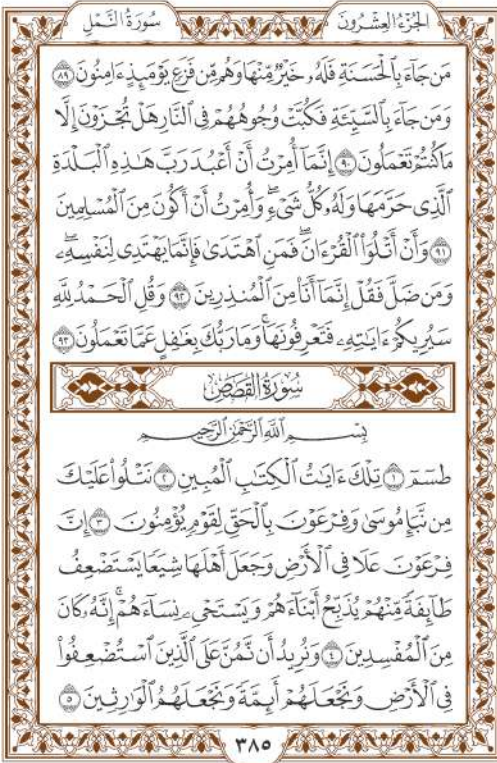 الجزء العشرون
سورة النمل
مَن جَآءَ بِٱلْحَسَنَةِ فَلَهُۥ خَيْرٌ مِّنْهَا وَهُم مِّن فَزَعٍ يَوْمَئِذٍ ءَامِنُونَ ٨٩
وَمَن جَآءَ بِٱلسَّيِّئَةِ فَكُبَّتْ وُجُوهُهُمْ فِى ٱلنَّارِ هَلْ تُجْزَوْنَ إِلَّا
مَا كُنتُمْ تَعْمَلُونَ ٩٠ إِنَّمَآ أُمِرْتُ أَنْ أَعْبُدَ رَبَّ هَٰذِهِ ٱلْبَلْدَةِ
ٱلَّذِى حَرَّمَهَا وَلَهُۥ كُلُّ شَىْءٍ ۖ وَأُمِرْتُ أَنْ أَكُونَ مِنَ ٱلْمُسْلِمِينَ
٩١ وَأَنْ أَتْلُوَا۟ ٱلْقُرْءَانَ ۖ فَمَنِ ٱهْتَدَىٰ فَإِنَّمَا يَهْتَدِى لِنَفْسِهِۦ ۖ
وَمَن ضَلَّ فَقُلْ إِنَّمَآ أَنَا۠ مِنَ ٱلْمُنذِرِينَ ٩٢ وَقُلِ ٱلْحَمْدُ لِلَّهِ
سَيُرِيكُمْ ءَايَٰتِهِۦ فَتَعْرِفُونَهَا ۚ وَمَا رَبُّكَ بِغَٰفِلٍ عَمَّا تَعْمَلُونَ ٩٣
سورة القصص
بِسْمِ ٱللَّهِ ٱلرَّحْمَٰنِ ٱلرَّحِيمِ
طسٓمٓ ١ تِلْكَ ءَايَٰتُ ٱلْكِتَٰبِ ٱلْمُبِينِ ٢ نَتْلُوا۟ عَلَيْكَ
مِن نَّبَإِ مُوسَىٰ وَفِرْعَوْنَ بِٱلْحَقِّ لِقَوْمٍ يُؤْمِنُونَ ٣ إِنَّ
فِرْعَوْنَ عَلَا فِى ٱلْأَرْضِ وَجَعَلَ أَهْلَهَا شِيَعًا يَسْتَضْعِفُ
طَآئِفَةً مِّنْهُمْ يُذَبِّحُ أَبْنَآءَهُمْ وَيَسْتَحْىِۦ نِسَآءَهُمْ ۚ إِنَّهُۥ كَانَ
مِنَ ٱلْمُفْسِدِينَ ٤ وَنُرِيدُ أَن نَّمُنَّ عَلَى ٱلَّذِينَ ٱسْتُضْعِفُوا۟
فِى ٱلْأَرْضِ وَنَجْعَلَهُمْ أَئِمَّةً وَنَجْعَلَهُمُ ٱلْوَٰرِثِينَ ٥
٣٨٥